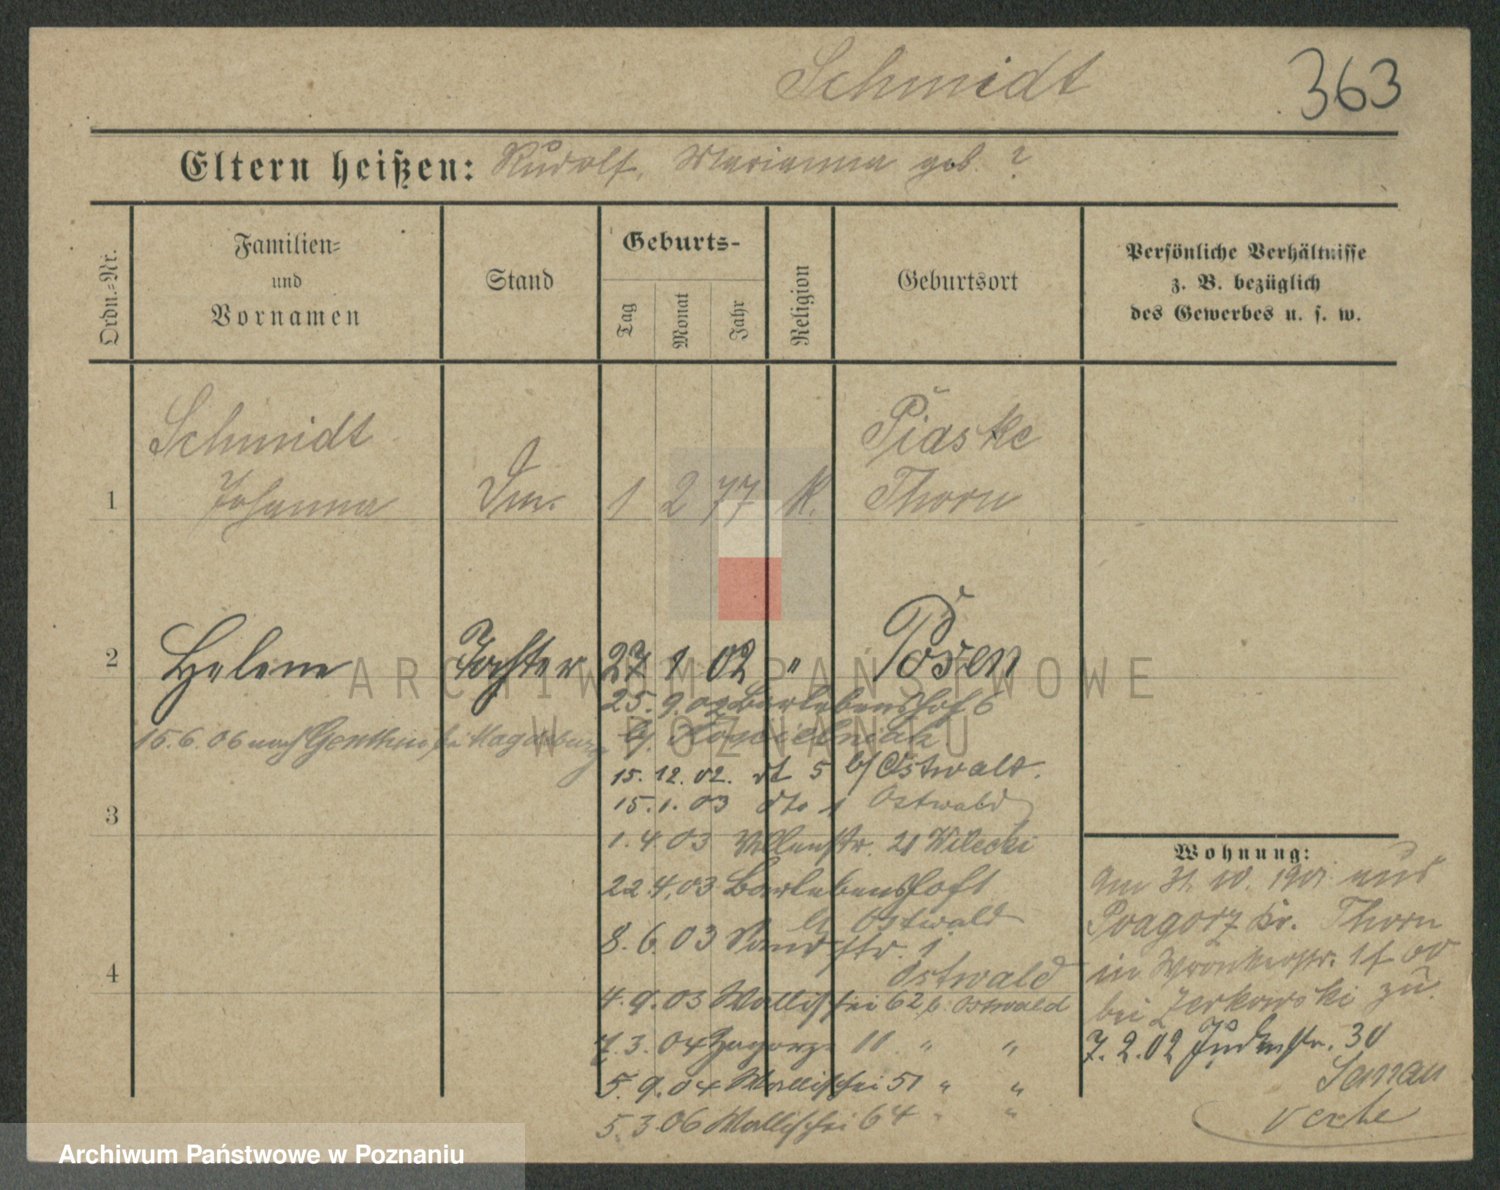 Schmidt
363
Eltern heißen: Rudolf, Marianna geb. ?
Ordn.-Nr.
Familien-
und
Vornamen
Stand
Geburts-
Tag
Monat
Jahr
Religion
Geburtsort
Persönliche Verhältnisse
z. B. bezüglich
des Gewerbes u. s. w.
Schmidt
Piaske
1 Johanna 1 2 77 K. Thorn
2 Helene Tochter 27 1 02 " Posen
25. 9. 02 Barlebenshof 6
15.6.06 nach Genthin Magdeburg
15. 12. 02. 5 b/ Ostwald.
15. 1. 03 dto 1 Ostwald
3
1. 4. 03 21 Wilecki
22 4. 03 Barlebenshof 1
b/ Ostwald
8. 6. 03 Sandstr. 1
Ostwald
4
4. 9. 03 Wallischei 62 b. Ostwald
7. 3. 04 Zagorze 11 " "
5. 9. 04 Wallischei 51 " "
5. 3. 06 Wallischei 64 " "
Wohnung:
Am 31. 10. 1901 aus
Podgorz Kr. Thorn
in Wronkerstr.
bei Zerkowski zu.
7. 2. 02 Judenstr. 30
verte
ARCHIWUM PAŃSTWOWE
W POZNANIU
Archiwum Państwowe w Poznaniu